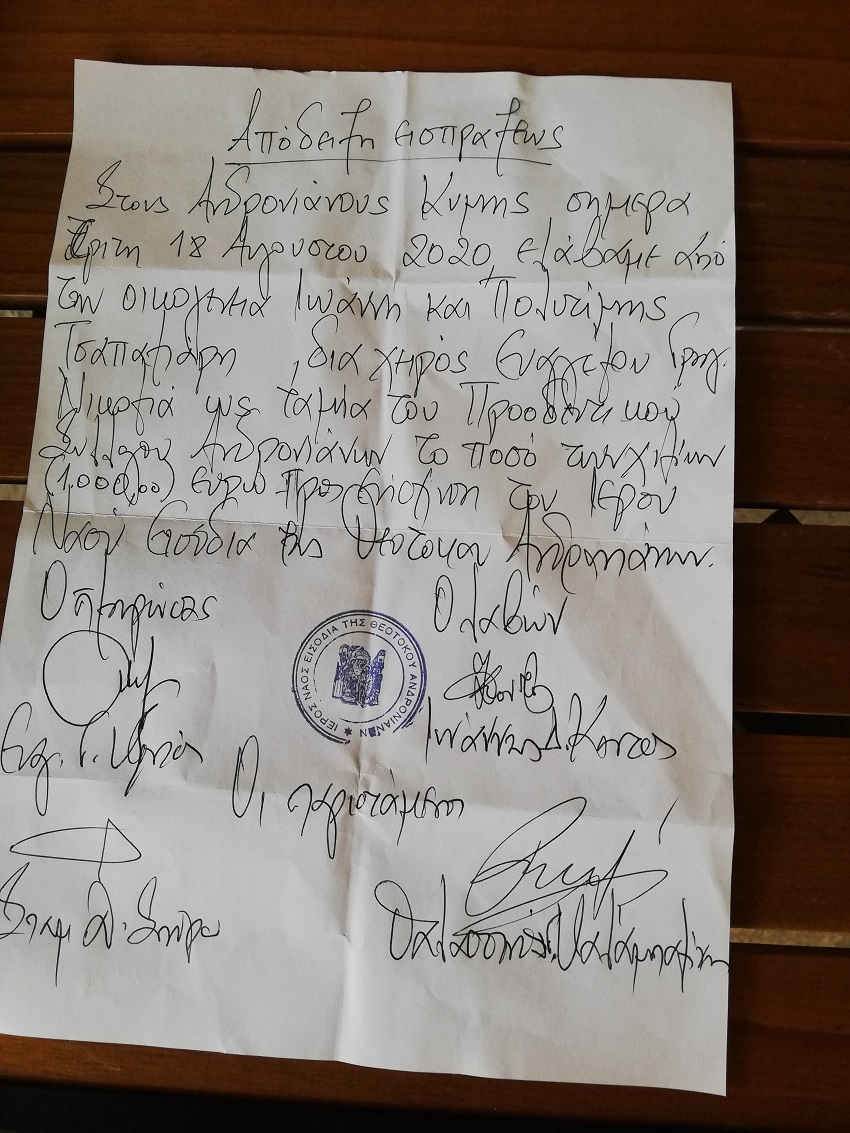 Απόδειξη εισπράξεως
Στους Ανδρονιάνους Κύμης σήμερα
Τρίτη 18 Αυγούστου 2020, ελάβαμε από
την οικογένεια Ιωάννη και Πολυτίμης
Τσαπατσάρη, δια χειρός Ευαγγέλου Γρηγ.
ως ταμία του Προοδευτικού
Συλλόγου Ανδρονιάνων το ποσό των χιλίων
(1.000,00) ευρώ προς ενίσχυση του Ιερού
Ναού Εισόδια της Θεοτόκου Ανδρονιάνων.
Ο πληρώσας Ο λαβών
ΙΕΡΟΣ ΝΑΟΣ ΕΙΣΟΔΙΑ ΤΗΣ ΘΕΟΤΟΚΟΥ ΑΝΔΡΟΝΙΑΝΩΝ
Ευαγ. Γ. Ιωάννης Δ. Κοντος
Οι παριστάμενοι
Σταμ